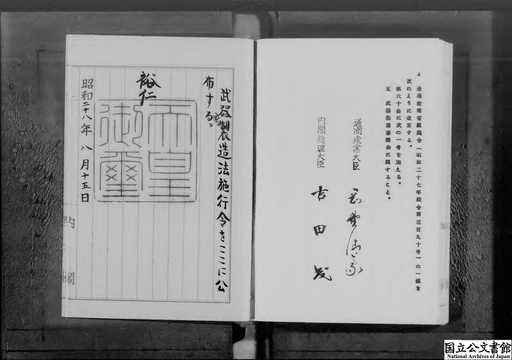 4 通商産業省組織令（昭和二十七年政令第三百九十号）の一部を
次のように改正する。
第六十条に次の一号を加える。
五 武器生産審議会に関すること。
通商産業大臣
岡野清豪
内閣総理大臣
吉田茂
武器製造法施行令をここに公
布する。
裕仁
天皇
御璽
昭和二十八年八月十五日
内閣
国立公文書館
National Archives of Japan